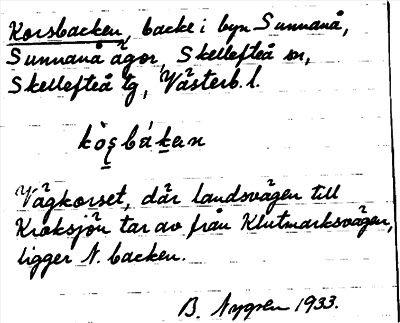 Korsbacken, backe i byn Sunnanå,
Sunnanå ägor, Skellefteå sn,
Skellefteå tg, Västerb. l.
Vägkorset, där landsvägen till
Kroksjön tar av från Klutmarksvägen,
ligger N. backen.
B. Nygren 1933.